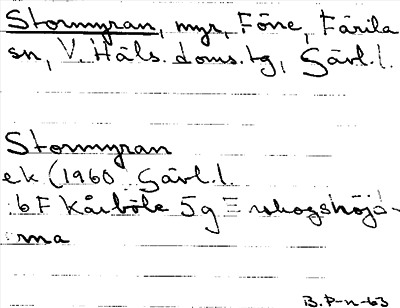 Stormyran, myr, Föne, Färila
sn, V. Häls. doms.tg, Gävl.l.
Stormyran
ek (1960 Gävl.l.
bF Kårböle 5g Ξ skogshöjd-
rna
B.P-n-63